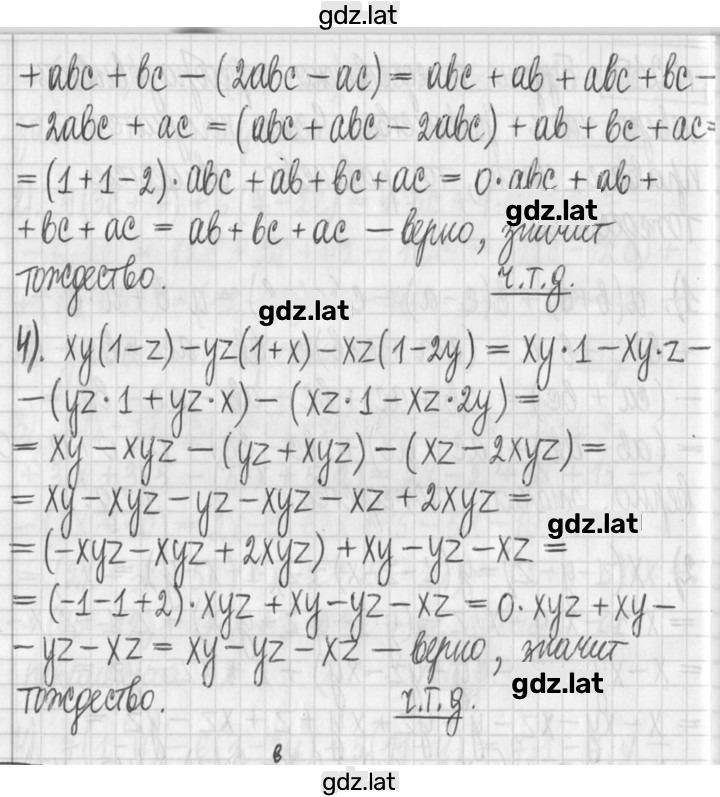 gdz.lat
+ abc + bc − (2abc − ac) = abc + ab + abc + bc −
− 2abc + ac = (abc + abc − 2abc) + ab + bc + ac =
= (1+1−2)·abc + ab + bc + ac = 0·abc + ab +
gdz.lat
+ bc + ac = ab + bc + ac − верно, значит
тождество. ч.т.д.
gdz.lat
4). xy(1−z) − yz(1+x) − xz(1−2y) = xy·1 − xy·z −
− (yz·1 + yz·x) − (xz·1 − xz·2y) =
= xy − xyz − (yz + xyz) − (xz − 2xyz) =
= xy − xyz − yz − xyz − xz + 2xyz =
gdz.lat
= (−xyz − xyz + 2xyz) + xy − yz − xz =
= (−1−1+2)·xyz + xy − yz − xz = 0·xyz + xy −
− yz − xz = xy − yz − xz − верно, значит
gdz.lat
тождество. ч.т.д.
в
gdz.lat